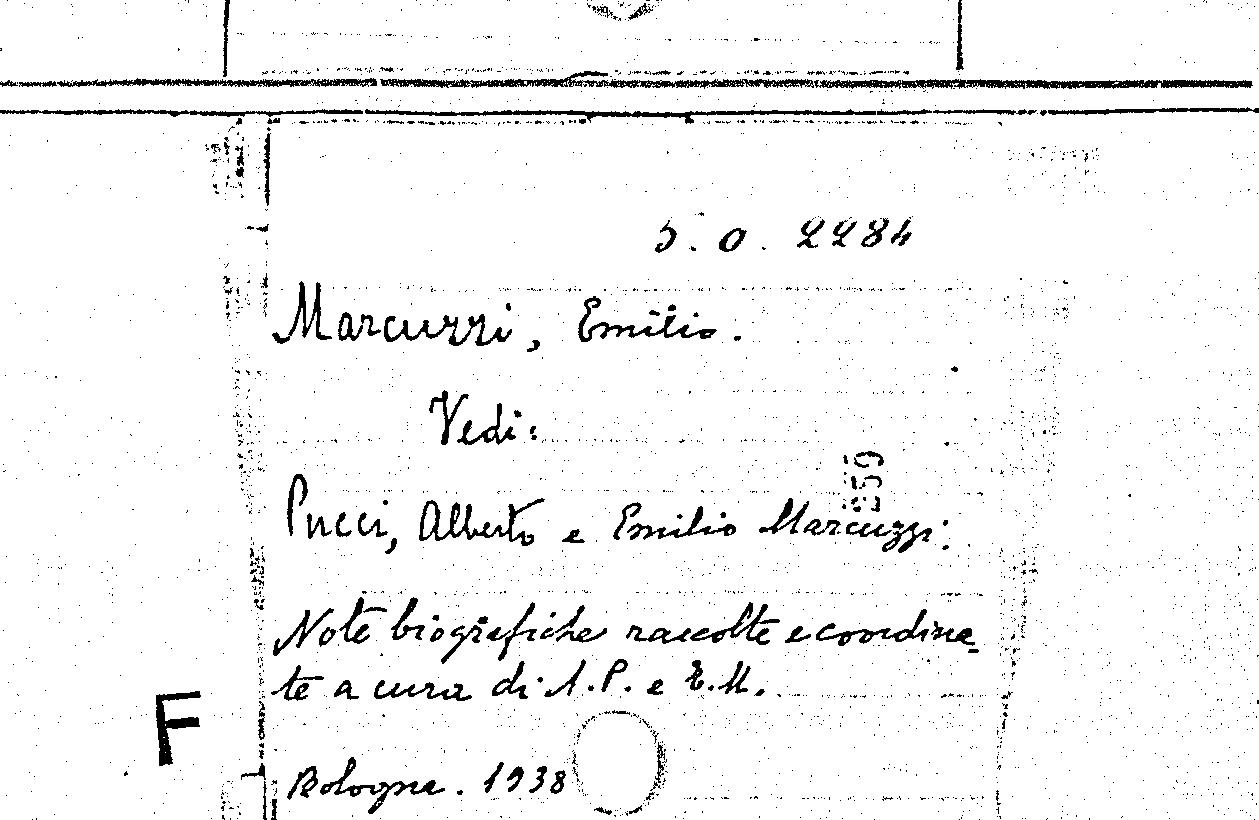 5. O. 2284
Marcuzzi, Emilio.
Vedi:
259
Pucci, Alberto e Emilio Marcuzzi:
Note biografiche raccolte e coordina-
te a cura di A. P. e E. M.
F
Bologna. 1938